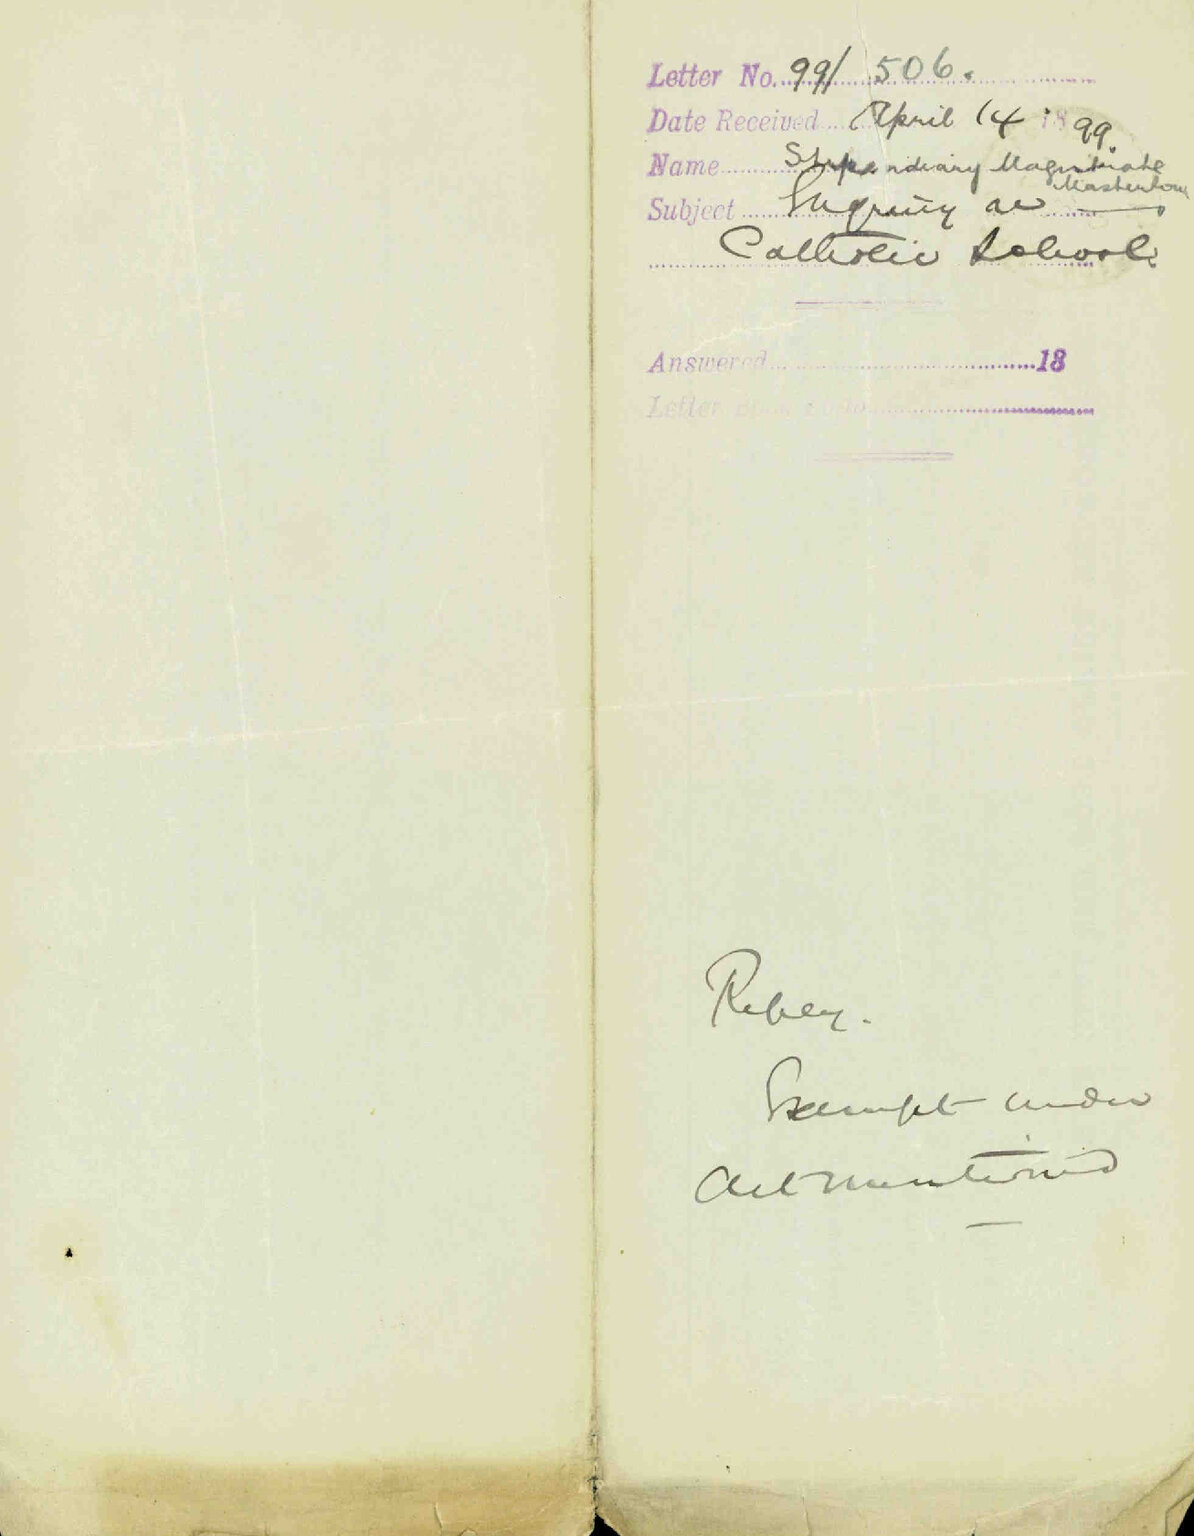 Letter No. 99/ 506.
Date Received April 14 1899.
Name Stipendiary Magistrate
Masterton
Subject Inquiry as
Catholic School
Answered 18
Letter
Reply.
Exempt under
Act mentioned